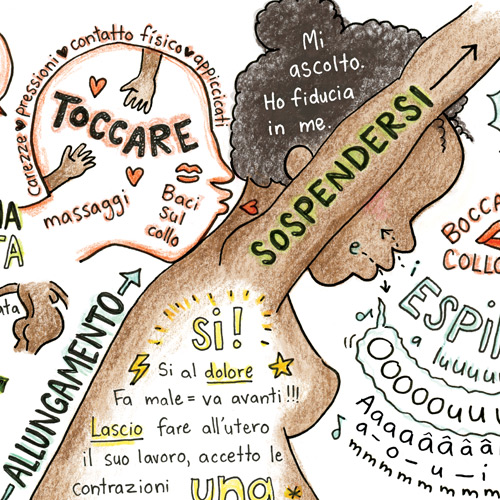 carezze ♥ pressioni ♥ contatto fisico ♥ appiccicati
TOCCARE
massaggi
Baci
sul
collo
Mi
ascolto.
Ho fiducia
in me.
SOSPENDERSI
TA
ALLUNGAMENTO
BOCCA
COLLO
e
i
a
Sì!
Sì al dolore
Fa male = va avanti!!!
Lascio fare all'utero
il suo lavoro, accetto le
contrazioni una
OOOOOuuu
Aaaaâââââ
a-o-u-i
mmmmmmmmmm